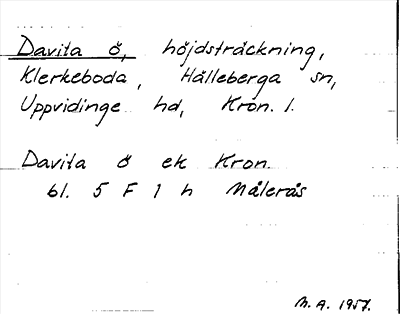 Davita ö, höjdsträckning,
Klerkeboda, Hälleberga sn,
Uppvidinge hd, Kron. l.
Davita ö ek Kron.
bl. 5 F 1 h Målerås
M.A. 1957.